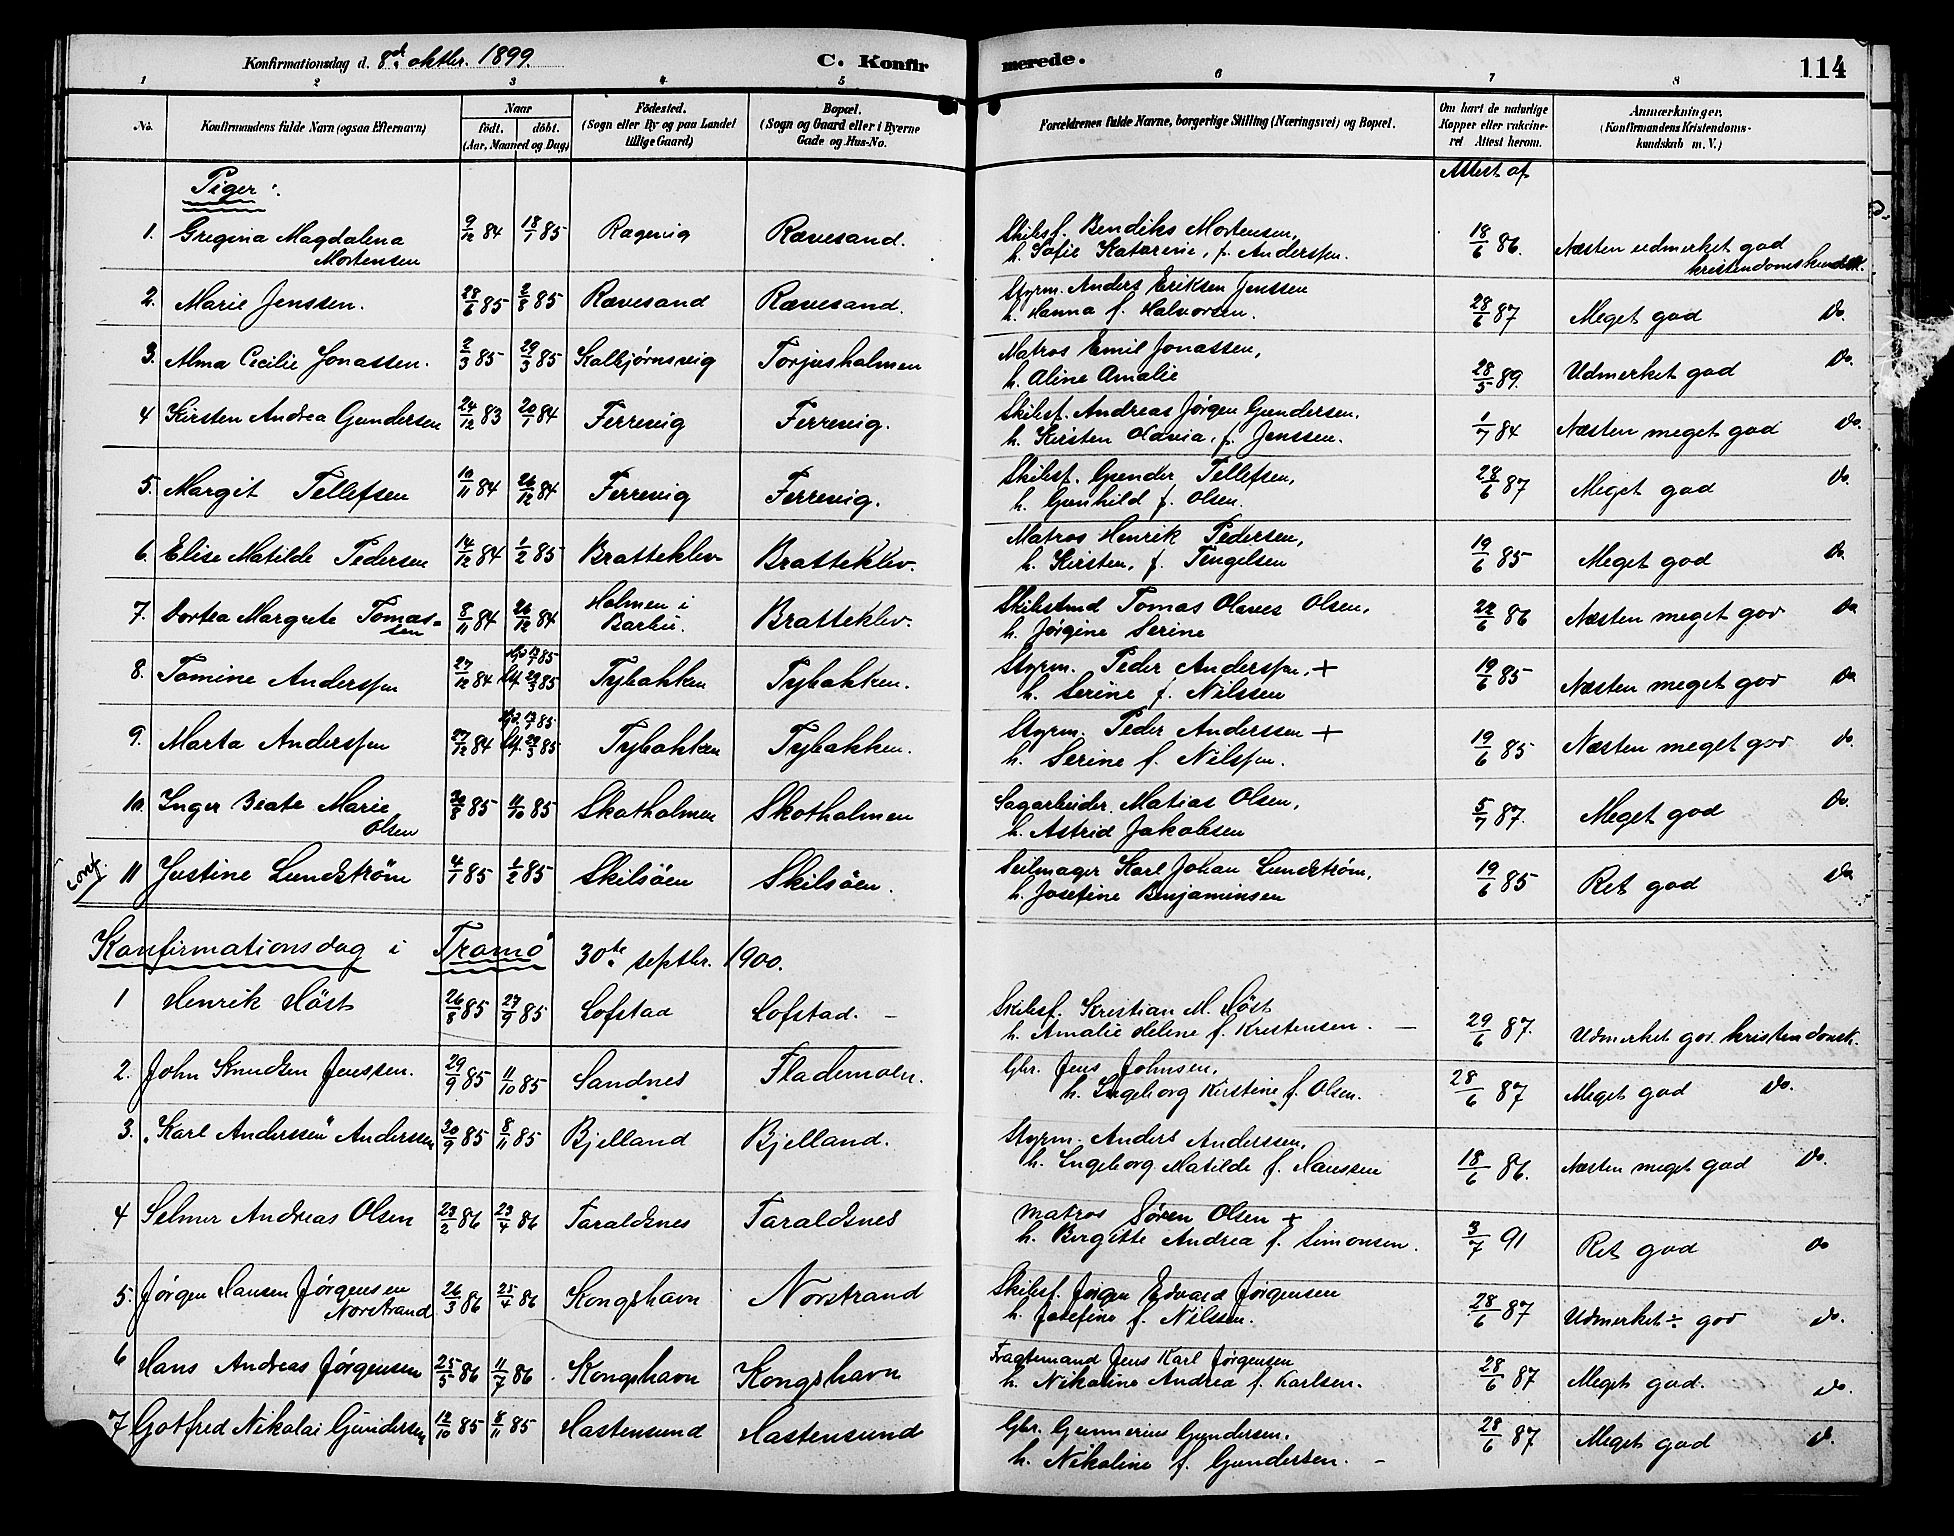 Konfirmationsdag d. 8de oktbr. 1899.
C. Konfirmerede.
114
1 2 3 4 5 6 7 8
No.
Konfirmandens fulde Navn (ogsaa Efternavn)
Naar
födt. döbt.
(Aar, Maaned og Dag)
Födested.
(Sogn eller By og paa Landet
tillige Gaard)
Bopæl.
(Sogn og Gaard eller i Byerne
Gade og Hus-No.
Forældrenes fulde Navne, borgerlige Stilling (Næringsvei) og Bopæl.
Om havt de naturlige
Kopper eller vakcine-
ret Attest herom.
Anmærkninger.
(Konfirmandens Kristendoms-
kundskab m. V.)
Attest af
Piger:
1. Gregina Magdalena Mortensen 9/12 84 18/1 85 Ragevig Rævesand. Skibsf. Bendiks Mortensen, 18/6 86. Næsten udmerket god
h. Sofie Katarine, f. Anderssen. kristendomskundsk.
2. Marie Jenssen. 28/6 85 2/8 85 Rævesand Rævesand. Styrm. Anders Eriksen Jenssen 28/6 87 Meget god Do.
h. Hanna f. Halvorsen.
3. Alma Cecilie Jonassen. 2/3 85 29/3 85 Kalbjørnsvig Torjusholmen Matros Emil Jonassen, 28/5 89. Udmerket god Do.
h. Aline Amalie
4 Kirsten Andrea Gundersen 24/12 83 20/1 84 Ferrevig Ferrevig. Skibst. Andreas Jørgen Gundersen. 1/7 84 Næsten meget god Do.
h. Kirsten Olavia, f. Jenssen.
5. Margit Tellefsen 10/11 84 26/12 84 Ferrevig Ferrevig. Skibst. Gunder Tellefsen, 28/6 87 Meget god Do.
h. Gunhild f. Olsen.
6. Elise Matilde Pedersen 14/12 84 1/2 85 Bratteklev Bratteklev. Matros Henrik Pedersen, 19/6 85 Meget god Do.
h. Kirsten, f. Tengelsen
7. Dortea Margrete Tomassen 8/11 84 26/12 84 Holmen i Barbu. Bratteklev. Skibstmd Tomas Olaves Olsen, 22/6 86 Næsten meget god Do
h. Jørgine Serine
8. Tomine Anderssen 27/12 84 85 29/3 85 Tybakken Tybakken. Styrm. Peder Anderssen, + 19/6 85 Næsten meget god Do
h. Serine f. Nilssen
9. Marta Anderssen 27/12 84 85 29/3 85 Tybakken Tybakken. Styrm. Peder Anderssen + 19/6 85 Næsten meget god Do.
h. Serine f. Nilssen.
10. Inger Beate Marie Olsen 20/8 85 11/10 85 Skotholmen Skotholmen Sagarbeider Matias Olsen, 5/7 87. Meget god Do.
h. Astrid Jakobsen
conf. 11 Justine Lundstrøm 4/1 85 1/2 85 Skilsöen Skilsöen. Seilmager Karl Johan Lundstrøm, 19/6 85 Ret god Do
h. Josefine Benjaminsen
Konfirmationsdag i Tromö 30te septbr. 1900.
1 Henrik Höst 26/8 85 27/9 85 Lofstad Lofstad. — Skibsf. Kristian M. Höst 29/6 87. Udmerket god kristendomsk.
h. Amalie Helene f. Kristensen. —
2. John Knudsen Jenssen. 29/9 85 11/10 85 Sandnes Flademoen. Gbr. Jens Johnsen, 28/6 87 Meget god Do.
h. Ingeborg Kirstine f. Olsen.
3. "Karl Anderssen" Anderssen 20/9 85 8/11 85 Bjelland Bjelland. Styrm. Anders Anderssen, 18/6 86. Næsten meget god Do.
h. Ingeborg Matilde f. Hanssen
4 Selmer Andreas Olsen 23/2 86 23/4 86 Taraldsnes Taraldsnes Matros Søren Olsen + 3/7 91 Ret god do
h. Bergitte Andrea f. Simonsen.
5. Jørgen Hansen Jørgensen Norstrand 26/3 86 25/4 86 Kongshavn Norstrand Skibsf. Jørgen Edvard Jørgensen 28/6 87 Udmerket ÷ god do.
h. Josefine f. Nilssen.
6 Hans Andreas Jørgensen 25/5 86 11/7 86 Kongshavn Kongshavn Fragtemand Jens Karl Jørgensen 28/6 87 Meget god. do.
h. Nikoline Andrea f. Karlsen.
7 Gotfred Nikolai Gundersen 12/10 85 8/11 85 Hastensund Hastensund Gbr. Gunnerius Gundersen, 28/6 87 Meget god do.
h. Nikoline f. Gundersen. —